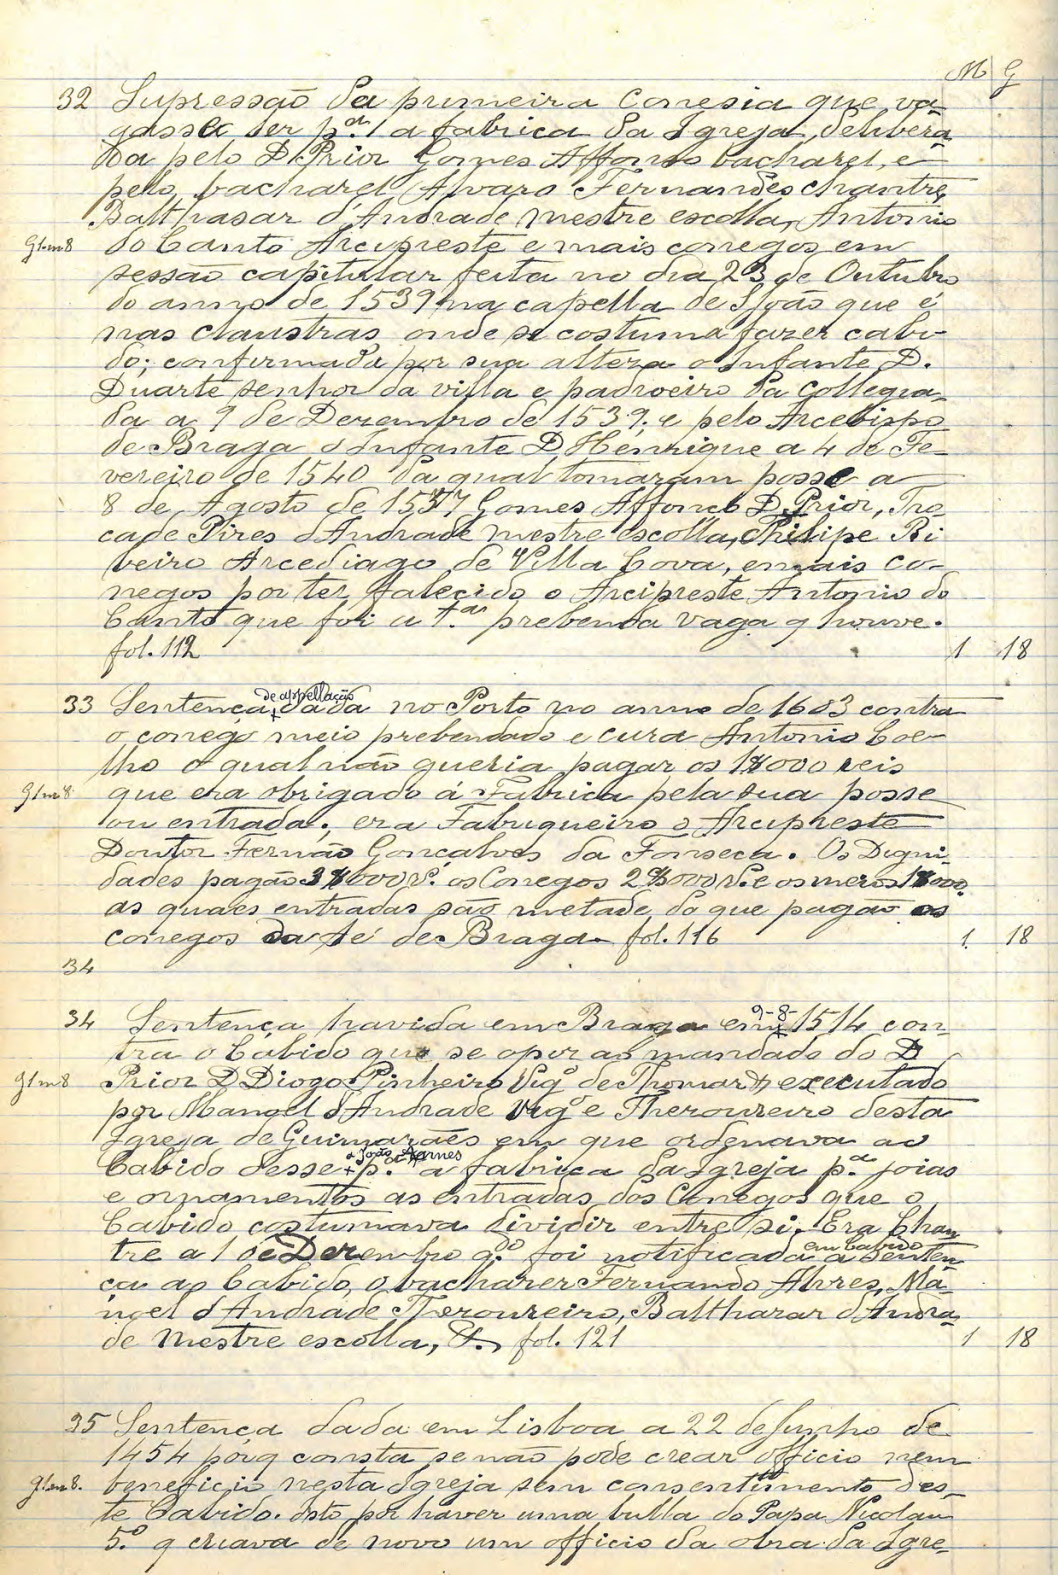 M G
32 Supressão da primeira conesia que va-
gasse ser p.ª a fabrica da Igreja, delibera
da pelo D. Prior Gomes Affonso bacharel, e
pelo, bacharel Alvaro Fernandes chantre,
Balthasar d'Andrade mestre escolla, Antonio
do Canto Arcipreste e mais conegos em
sessão capitular feita no dia 23 de Outubro
do anno de 1539 na capella de S. João que é
nas claustras, onde se costuma fazer cabi-
do; confirmada por sua alteza o Infante D.
Duarte senhor da villa e padroeiro da Collegia-
da a 9 de Dezembro de 1539, e pelo Arcebispo
de Braga o Infante D. Henrique a 4 de Fe-
vereiro de 1540 da qual tomaram posse a
8 de Agosto de 1557 Gomes Affonso D. Prior,
Pires d'Andrade mestre escolla, Philipe Ri
beiro Arcediago de Villa Cova, e mais co-
negos por ter falecido o Arcipreste Antonio do
Canto que foi a 1.ª prebenda vaga q houve.
fol. 112 1 18
33 Sentença de appellação dada no Porto no anno de 1603 contra
o conego meio prebendado e cura Antonio Coe-
lho o qual não queria pagar os 1$000 reis
que era obrigado á Fabrica pela sua posse
ou entrada; era Fabriqueiro o Arcipreste
Doutor Fernão Gonçalves da Fonseca. Os Digni-
dades pagão 3$000 r.s os Conegos 2$000 r.s e os meios 1$000
as quaes entradas são metade do que pagão os
conegos da Sé de Braga. fol. 116 1 18
34
34 Sentença havida em Braga em 9-8-1514 con-
tra o Cabido que se opoz ao mandado do D.
Prior D. Diogo Pinheiro Vig.º de Thomar executado
por Manoel d'Andrade Vig.º e Thezoureiro desta
Igreja de Guimarães em que ordenava ao
Cabido desse p.ª a fabrica da Igreja p.ª joias
e ornamentos as entradas dos Conegos que o
Cabido costumava dividir entre si. Era Chan
tre a 1 de Dezembro q.do foi notificada em cabido a senten-
ça ao Cabido, o bacharel Fernando Alvres, Ma-
noel d'Andrade Thezoureiro, Balthazar d'Andra-
de Mestre escolla, &. fol. 121 1 18
35 Sentença dada em Lisboa a 22 de Junho de
1454 porq consta se não pode crear officio nem
beneficio nesta Igreja sem consentimento des-
te Cabido. Isto por haver uma bulla do Papa Nicolau
5.º q criava de novo um officio da obra da Igre-